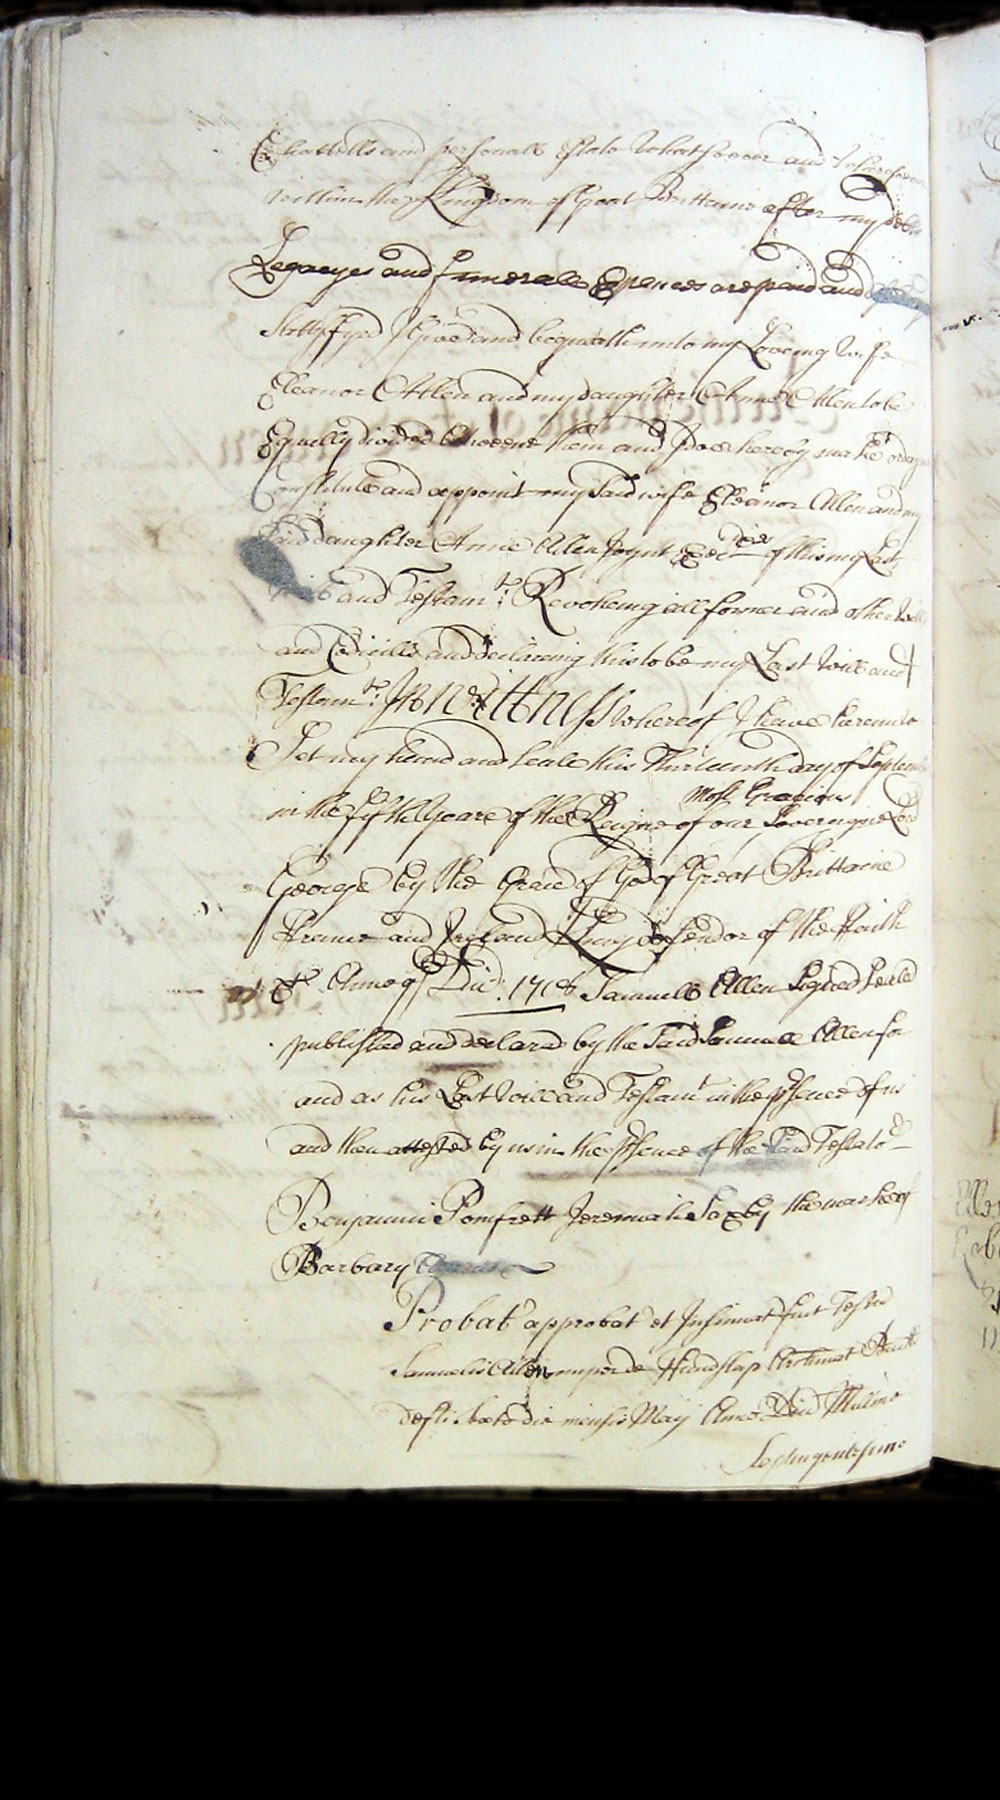 Chattells and personall Estate whatsoever and wheresoever
within the Kingdom of Great Brittaine after my debts
Legacyes and funerall Expences are paid and
Sattisfyed I Give and bequeath unto my Loveing wife
Eleanor Allen and my daughter Anne Allen to be
Equally divided betweene them and I doe hereby make ordayne
Constitute and appoint my Said wife Eleanor Allen and my
Said daughter Anne Allen Joynt Exec of this my Last
and Testamt: Revokeing all former and other Wills
and Codicills and declareing this to be my Last will and
Testamt: In Wittness whereof I have hereunto
Set my hand and Seale this Thirteenth day of September
in the fifth Yeare of the Reigne of our most Gracious Soveraigne Lord
George by the Grace of God of Great Brittaine
France and Ireland King defendor of the Faith
&c Annoq Dni: 1718 Samuell Allen Signed Sealed
published and declared by the Said Samuell Allen for
and as his Last will and Testamt in the psence of us
and then attested by us in the psence of the Said Testator
Benjamin Pomfrett Jeremiah Saxby the marke of
Barbary
Probat approbat et Insinuat fuit Testm
Samuelis Allen nuper de Hanslap Archinat Bucks
defti die mensis Maij Anno Dni Millmo
Septingentesimo